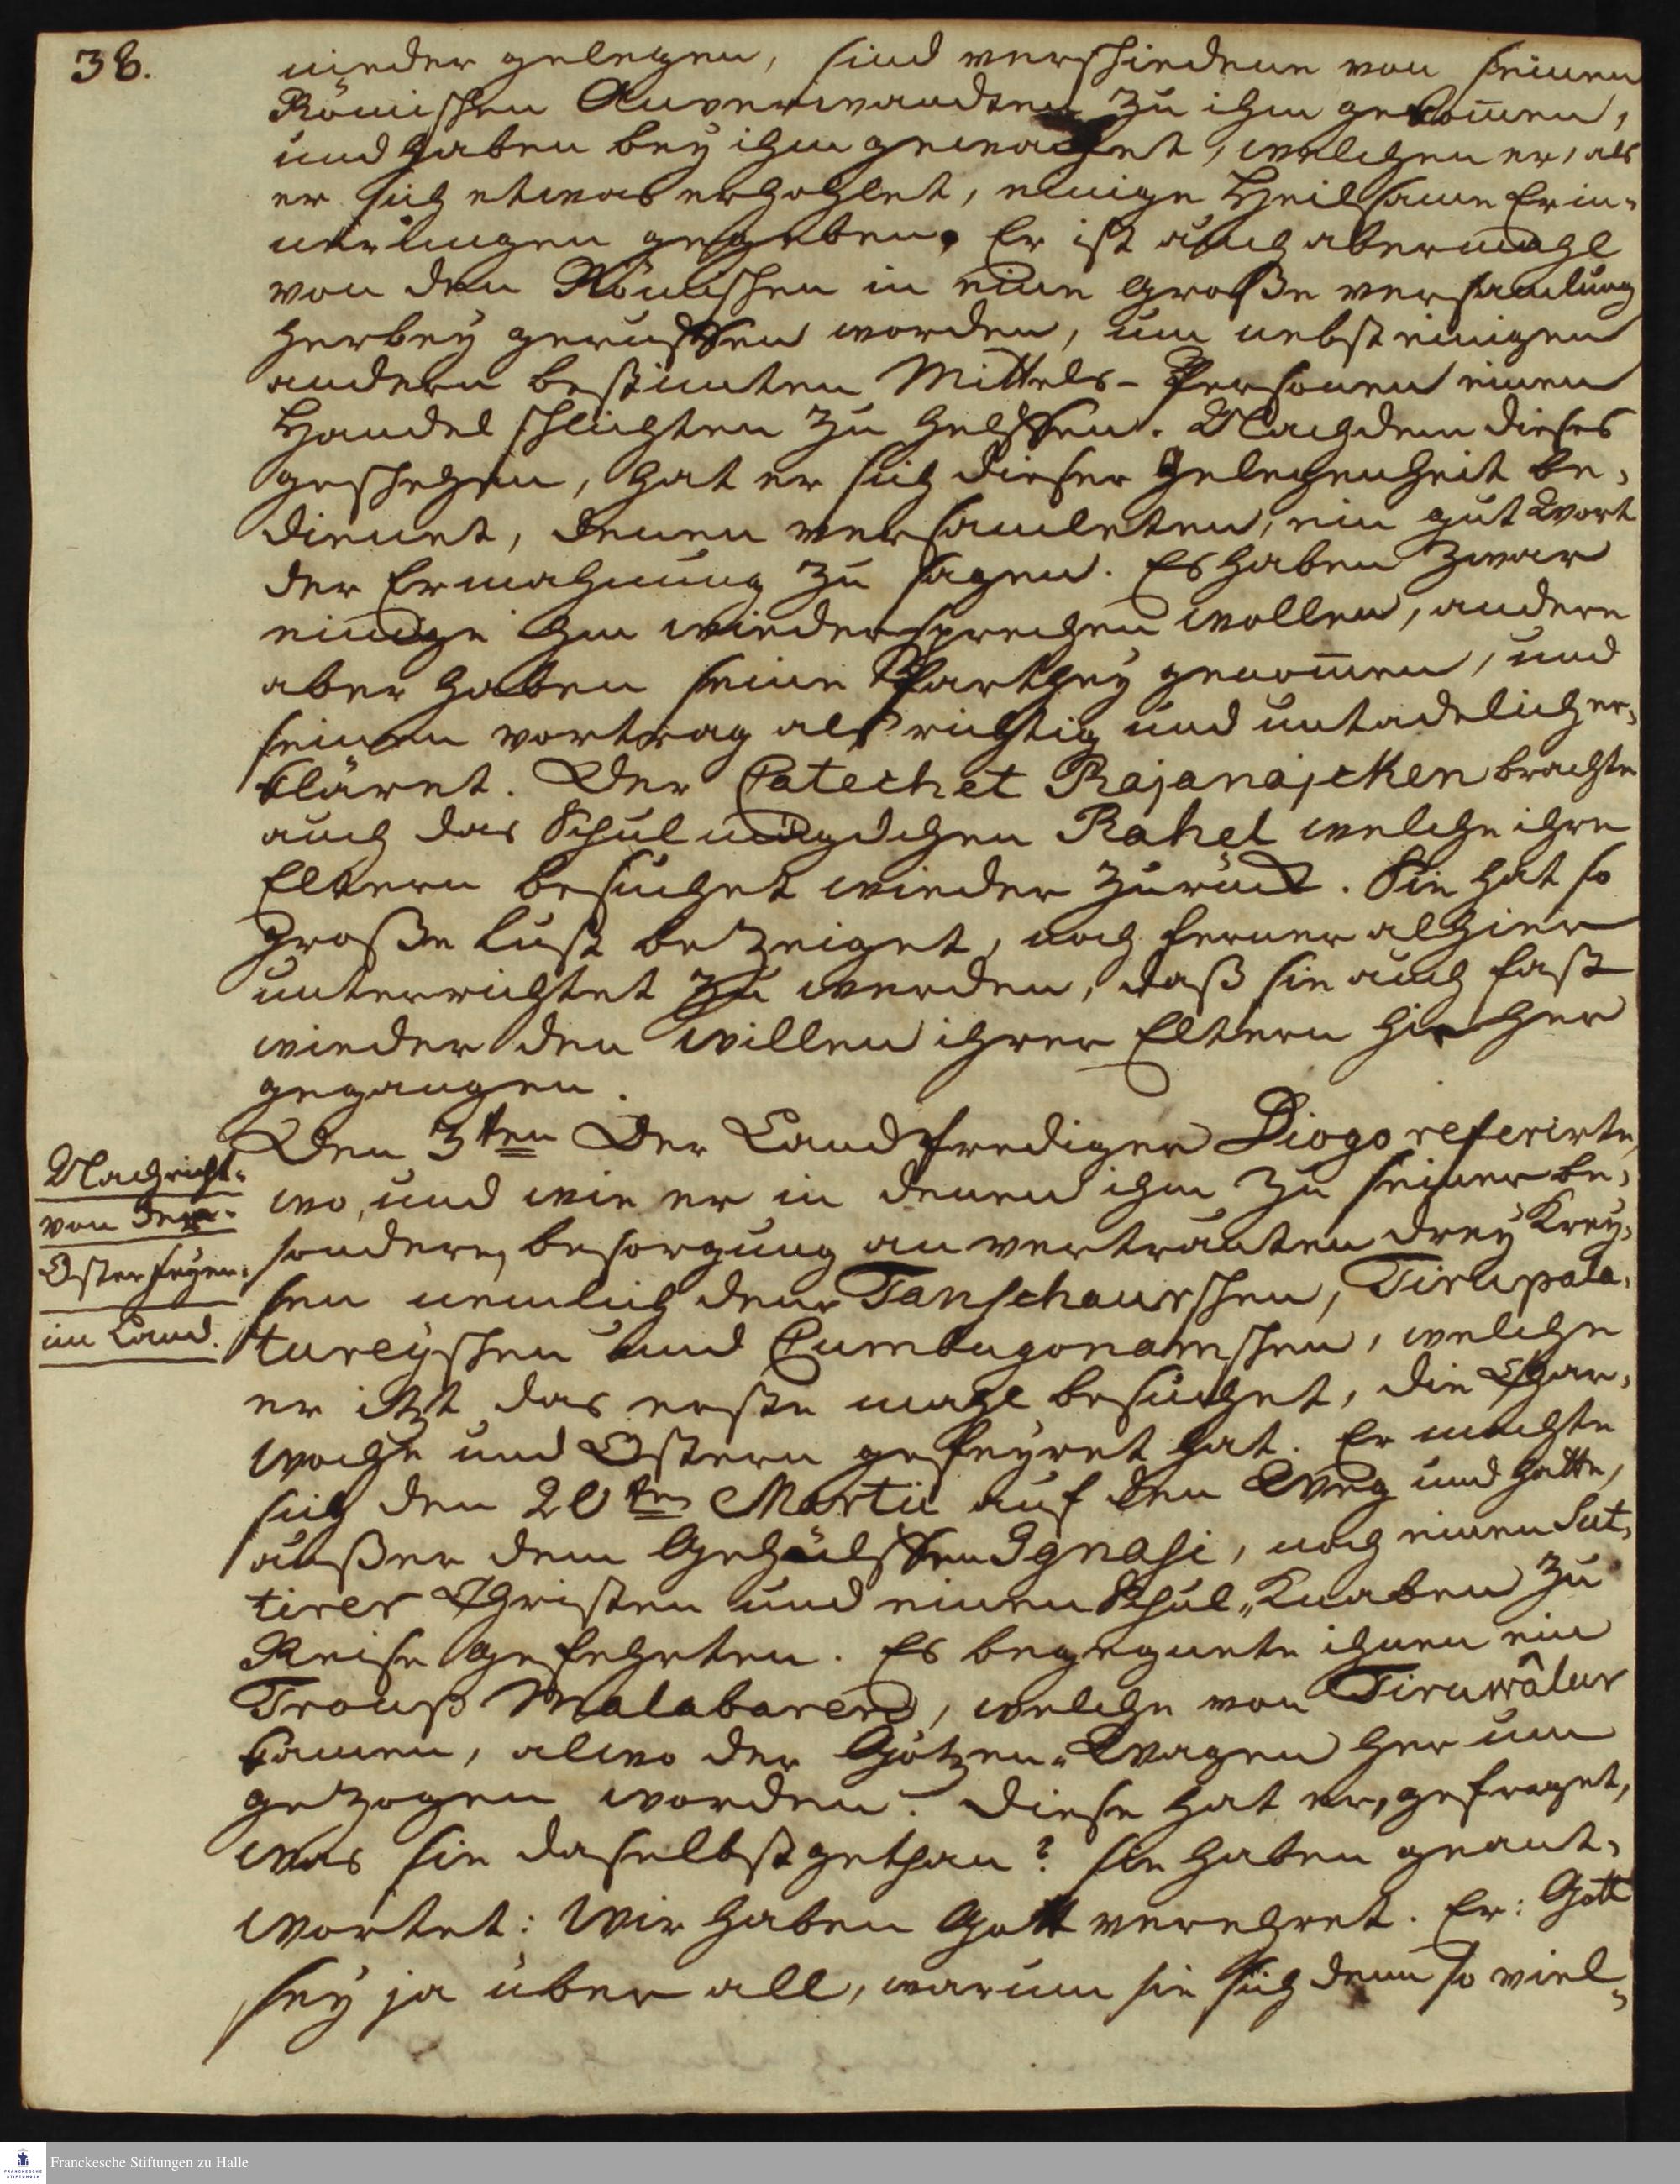 38.
nieder gelegen, sind verschiedene von seinen
Römischen Anverwandten zu ihm gekom̄en,
und haben bey ihm gewachet, welchen er, als
er sich etwas erhohlet, einige Heilsame Erin-
nerungen gegeben. Er ist auch abermahl
von den Römischen in eine große versamlung
herbey geruffen worden, um nebst einigen
andern bestimten Mittels-Personen einen
Handel schlichten zu helffen. Nachdem dieses
geschehen, hat er sich dieser Gelegenheit be-
dienet, denen versamleten, ein gut Wort
der Ermahnung zu sagen. Es haben zwar
einige ihm wiedersprechen wollen, andere
aber haben seine Parthey genom̄en, und
seinen vortrag als richtig und untadelich er-
kläret. Der Catechet Rajanajcken brachte
auch das Schulmägdchen Rahel welche ihre
Eltern besuchet wieder zurück. Sie hat so
große Lust bezeiget, noch ferner alhier
unterrichtet zu werden, daß sie auch fast
wieder den Willen ihrer Eltern hieher
gegangen.
Nachricht-
von der-
Osterfeyer-
im Land.
Den 3ten Der Landprediger Diogo referirte,
wo, und wie er in denen ihm zu seiner be-
sondern besorgung anvertrauten drey Krey-
sen nemlich dem Tanschaurschen, Tirupala-
tureyschen und Cumbagonamschen, welche
er itzt das erste mahl besuchet, die Char-
woche und Ostern gefeyret hat. Er machte
sich den 20ten Martii auf den Weg und hatte,
außer dem Gehülffen Ignasi, noch einen Sut-
tirer Christen und einen Schul-Knaben zu
Reise Gefehrten. Es begegnete ihnen ein
Troup Malabaren, welche von Tiruwâlur
kamen, alwo der Götzen-Wagen herum
gezogen worden. Diese hat er, gefraget,
was sie daselbst gethan? sie haben geant-
wortet: Wir haben Gott verehret. Er: Gott
sey ja über all, warum sie sich denn so viel-
Franckesche Stiftungen zu Halle
FRANCKESCHE
STIFTUNGEN